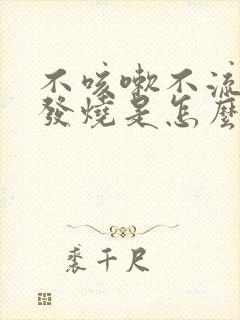 不咳嗽不流
發燒是怎麼
裘千尺